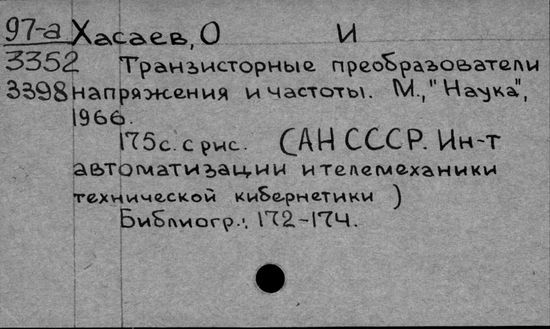 97-а Хасаев, О И
3352 Транзисторные преобразователи
3398 напряжения и частоты. М., "Наука",
1966.
175с. с рис. (АН СССР. Ин-т
автоматизации и телемеханики
технической кибернетики)
Библиогр.: 172-174.